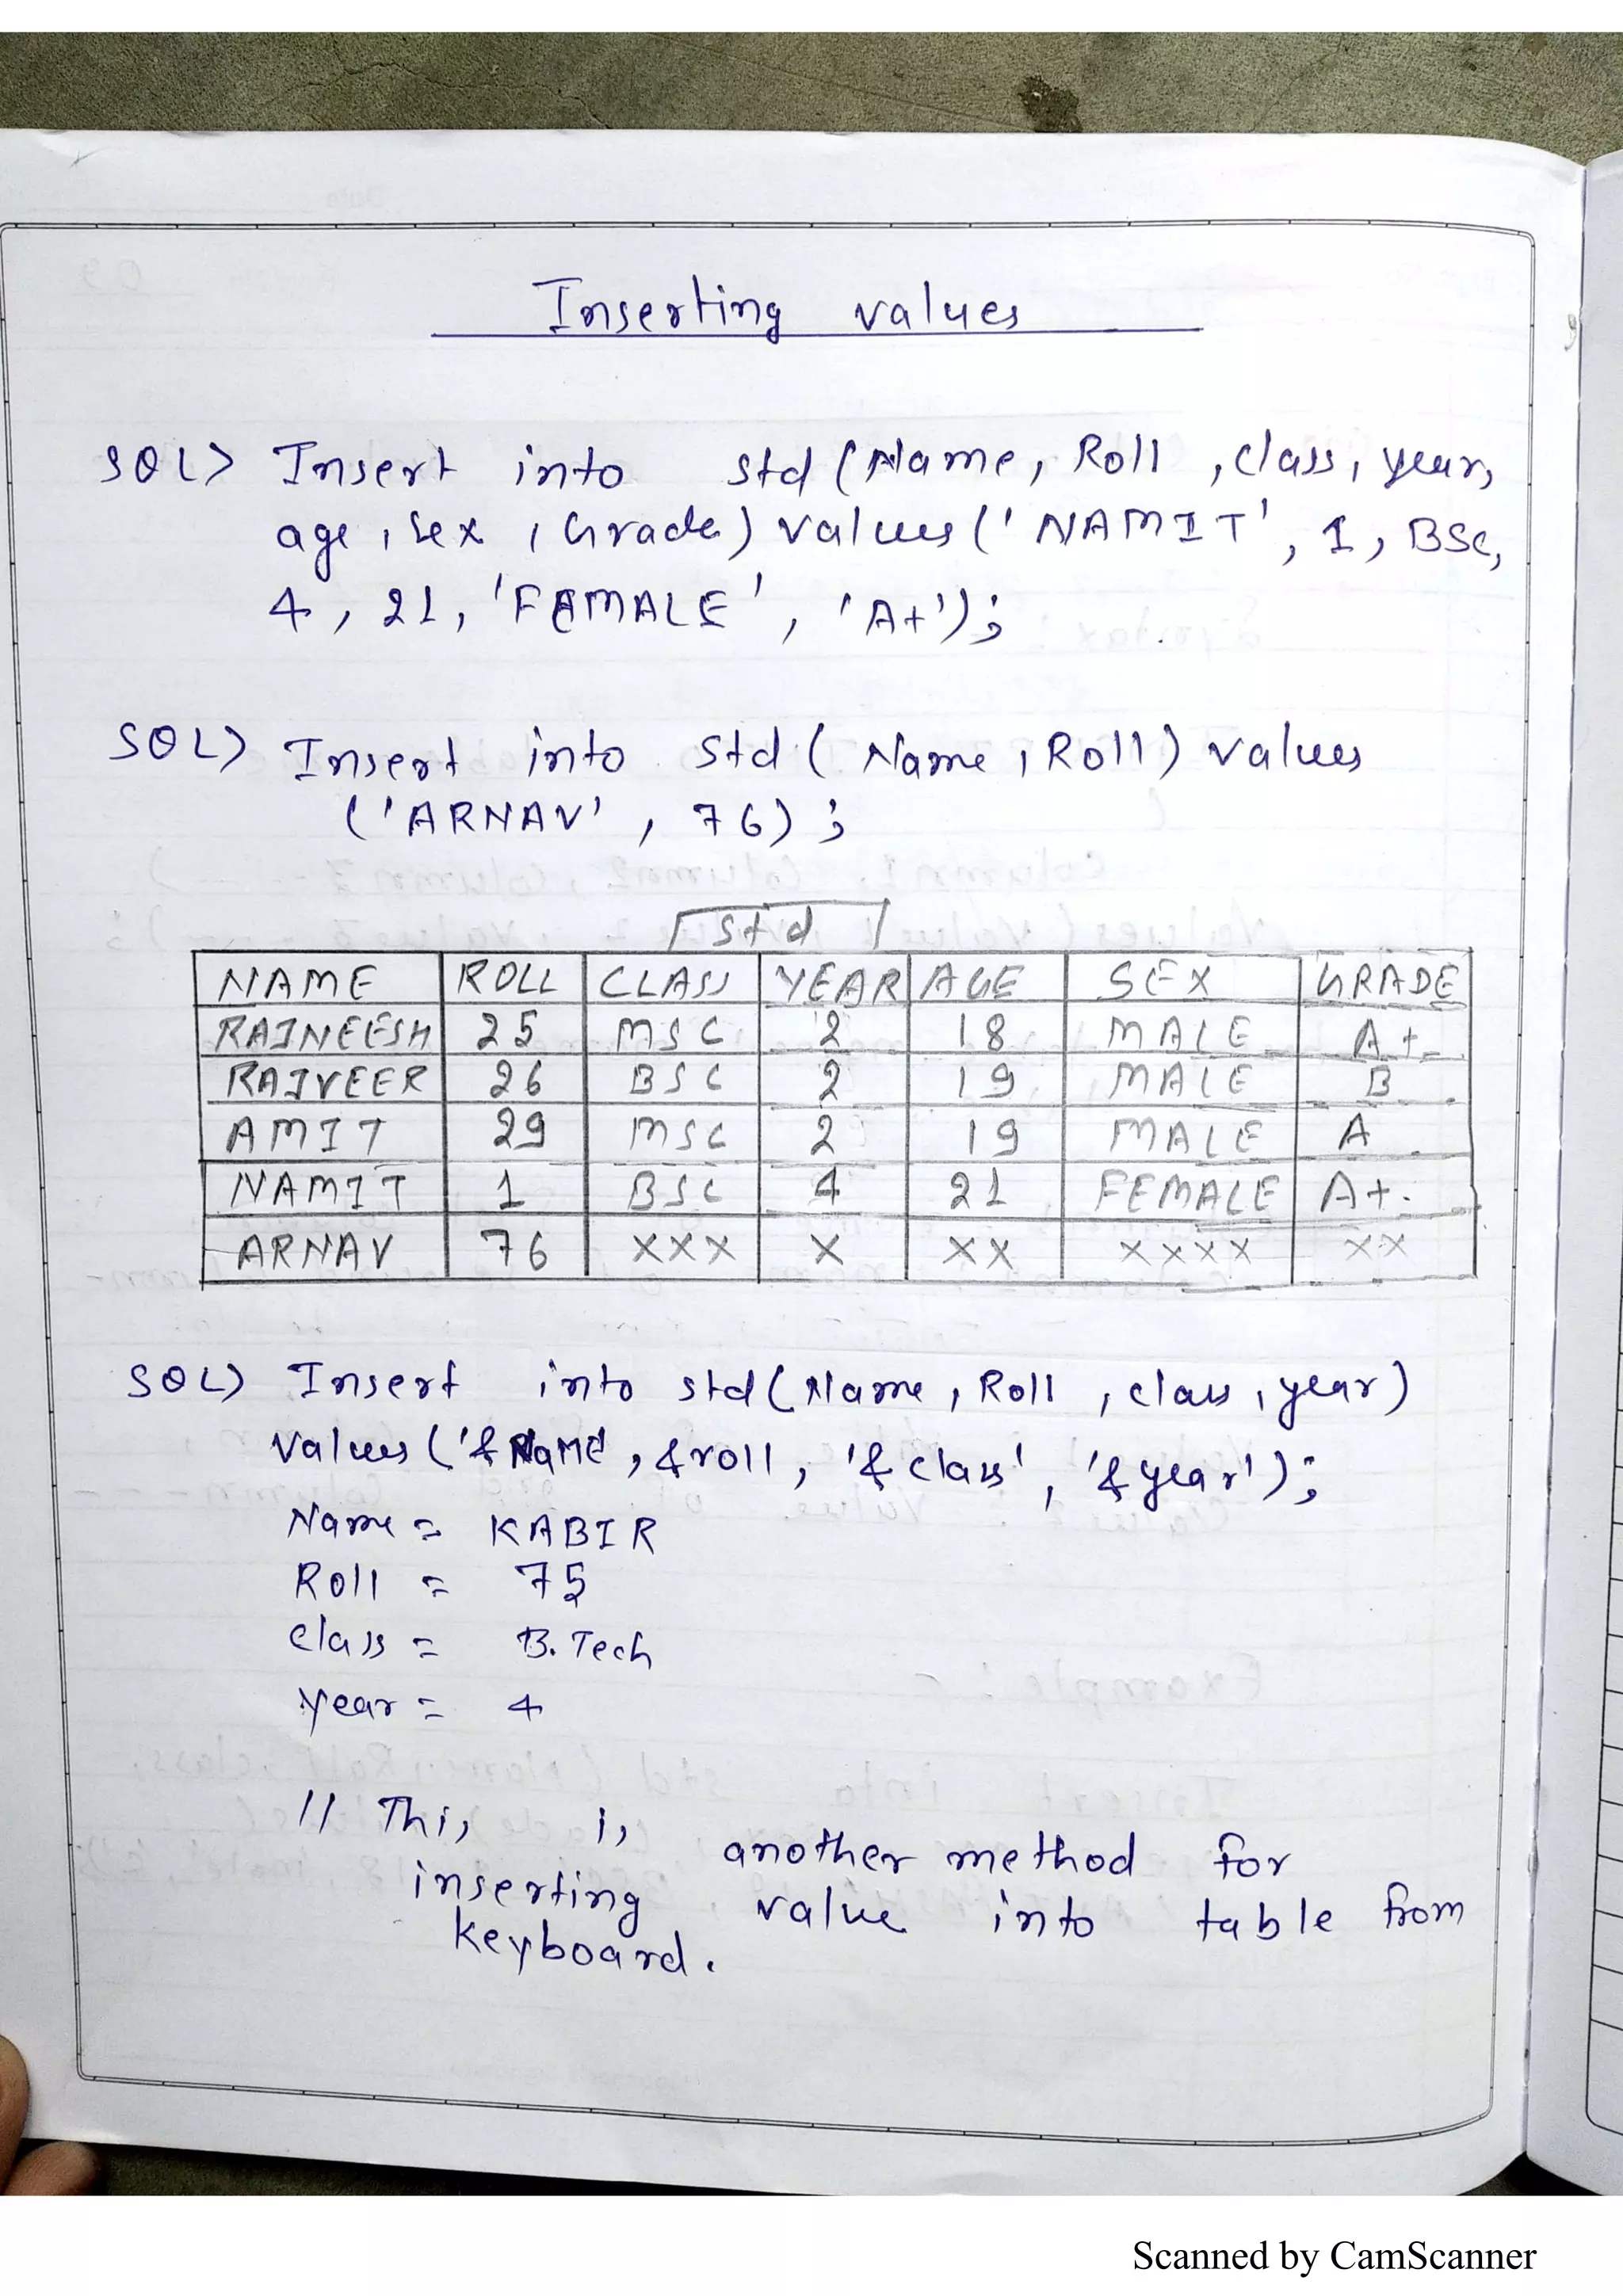 Inserting values
SQL> Insert into std (Name, Roll , class, year,
age , sex , Grade) values (' NAMIT', 1, BSc,
4, 21, 'FEMALE', 'A+');
SQL> Insert into std ( Name , Roll) values
('ARNAV' , 76) ;
std
NAME ROLL CLASS YEAR AGE SEX GRADE
RAJNEESH 25 MSC 2 18 MALE A+
RAJVEER 26 BSC 2 19 MALE B
AMIT 29 MSC 2 19 MALE A
NAMIT 1 BSC 4 21 FEMALE A+
ARNAV 76 XXX X XX XXXX XX
SQL> Insert into std (Name , Roll , class , year)
values ('& NaME , &roll, '& class' , '& year');
Name = KABIR
Roll = 75
class = B. Tech
year = 4
// This is another method for
inserting value into table from
keyboard.
Scanned by CamScanner